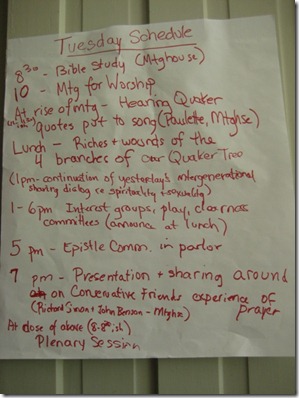 Tuesday Schedule
8³⁰ - Bible Study (Mtghouse)
10 - Mtg for Worship
At rise of mtg - Hearing Quaker
quotes put to song (Paulette, Mtghse)
Lunch - Riches + wounds of the
4 branches of our Quaker Tree
(1pm - continuation of yesterday's intergenerational
sharing dialog re spirituality + sexuality)
1-6pm Interest groups, play, clearness
committees (announce at lunch)
5 pm - Epistle Comm. in parlor
7 pm - Presentation + sharing around
on Conservative Friends experience of
prayer
(Richard Simon + John Benson - Mtghse)
At close of above (8-8³⁰ish)
Plenary Session